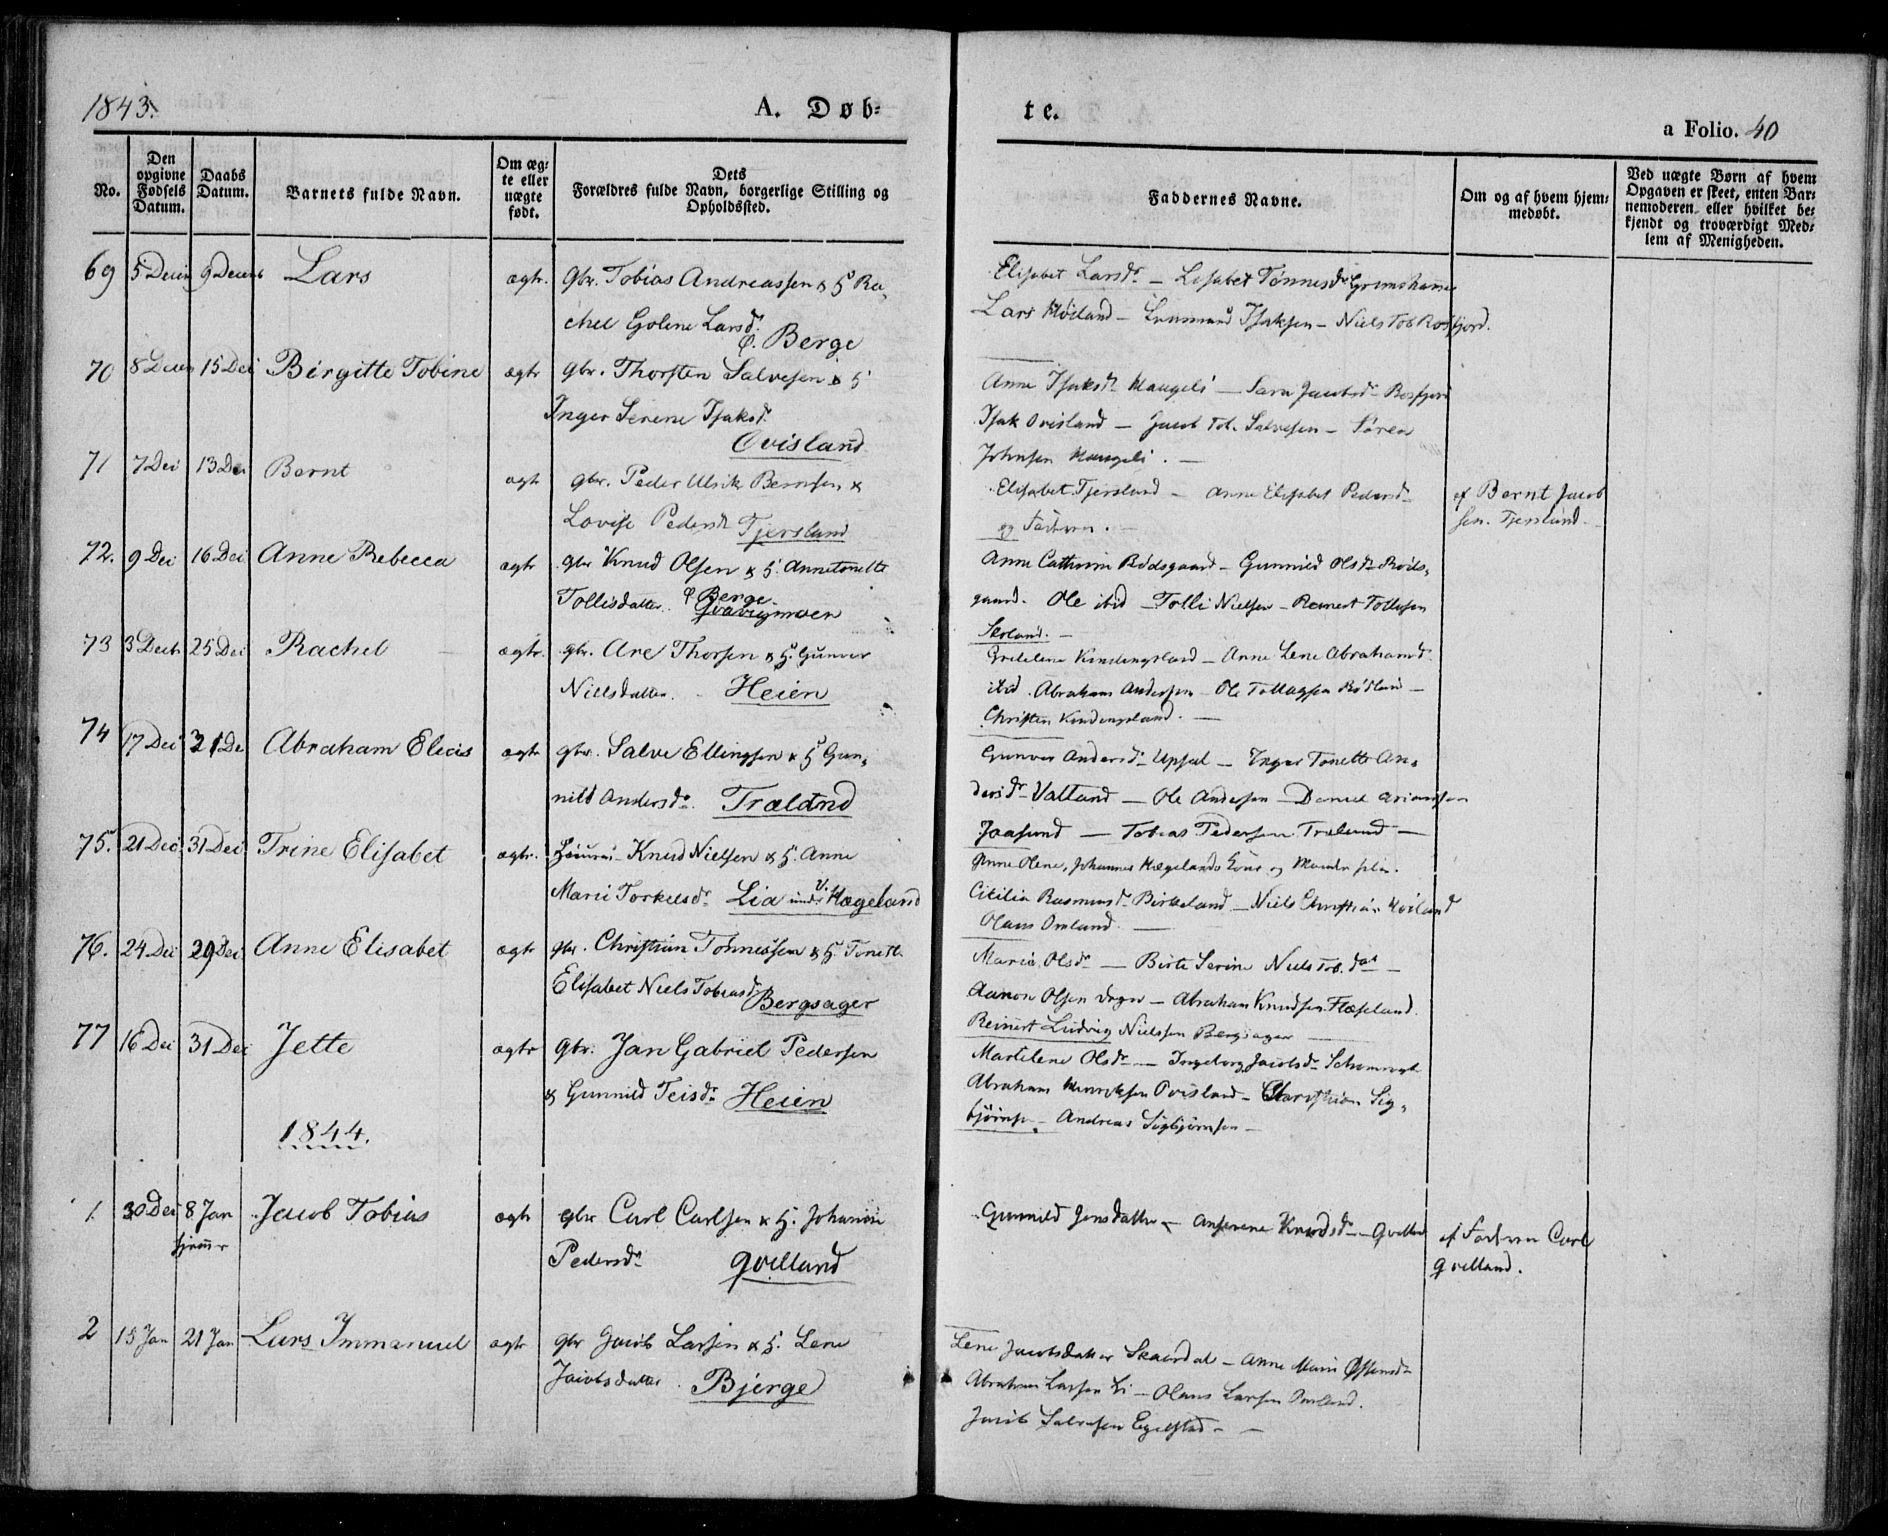 1843.
A. Døb-
te.
a Folio. 40
No.
Den opgivne Fødsels Datum.
Daabs Datum.
Barnets fulde Navn.
Om ægte eller uægte født.
Dets
Forældres fulde Navn, borgerlige Stilling og
Opholdssted.
Faddernes Navne.
Om og af hvem hjemmedøbt.
Ved uægte Børn af hvem
Opgaven er skeet, enten Bar-
nemoderen eller hvilket be-
kjendt og troværdigt Med-
lem af Menigheden.
69 Lars ægte. gbr. Tobias Andreassen & H Ra-
chel Golene Larsdr.
Berge
Elisabet Larsdr — Lisabet Tønnesdr
Lars Høiland — Isaksen — Niels Tob Rosfjord.
70 15 Dec Birgitte Tobine ægte gbr. Thorsten Salvesen & H
Inger Serene Isaksdr
Ovisland
Anne Isaksdr Haugeli — Sara Jacobsdr Rosfjord
Isak Ovisland — Jacob Tob. Salvesen — Søren
Johnsen Haugeli. —
71 7 Dec 13 Dec Bernt ægte gbr. Peder Ulrik Berntsen &
Lovise Pedersdr Tjersland
Elisabet Tjersland — Anne Elisabet Pedersdr
og Faderen. —
af Bernt Jacob
sen. Tjersland.
72. 9 Dec 16 Dec Anne Rebecca ægte gbr Knud Olsen & H. Annetonette
Tollisdatter. Berge
Anne Cathrine Rødsgaard — Gunnild Olsdr Røds-
gaard. Ole ibid — Tolli Nielsen — Reinert Tollisen
73 25 Dec Rachel ægte. gbr. Are Thorsen & H. Gunver
Nielsdatter. Heien
Anne Lene Abrahamsd.
ibid. Abraham Andersen — Ole
Christen
74 17 Dec 21 De Abraham Elias ægte gbr. Salve Ellingsen & H Gun-
nild Andersdr. Træland
Gunver Andersdr Upsal — Inger Tonette An-
dersdr Valland — Ole Andersen — Daniel
Jaasund — Tobias Pedersen Træland —
75. 21 Dec 31 Dec Trine Elisabet ægte. Knud Nielsen & H. Anne
Marie Torkelsdr Lia under Hægeland
Anne Olene, Johannes Hægelands Kone og
Cicilia Rasmusdr Birkeland — Niels Christian Høiland
Olaus Omland. —
76. 24 Dec 29 Dec Anne Elisabet ægte gbr. Christian Tønnessen & H. Tonette
Elisabet Niels Tobiasdr Bergsager
Maria Olsdr — Birte Serine Niels Tob. dat —
Aanon Olsen — Abraham Knudsen Flæseland.
Reinert Ludvig Nielsen Bergsager —
77 16 Dec 31 Dec Jette ægte gbr. Jan Gabriel Pedersen
& Gunnild Teisdr Heien
Martilene Olsdr — Ingeborg Jacobsdr
Abraham Henriksen Ovisland — Christian Sig-
bjørnsn — Andreas Sigbjørnsen —
1844.
1. 30 Dec 8 Jan Jacob Tobias ægte gbr Carl Carlsen & H. Johanne
Pedersdr Qvelland
Gunnild Jensdatter — Knudsdr —
af Faderen Carl
Qvelland.
2 15 Jan 21 Jan Lars Immanuel ægte gbr Jacob Larsen & H. Lene
Jacobsdatter. Bjerge
Lene Jacobsdatter — Anne Marie
Abraham Larsen Li — Olaus Larsen Omland.
Jacob Salvesen Egelstad —